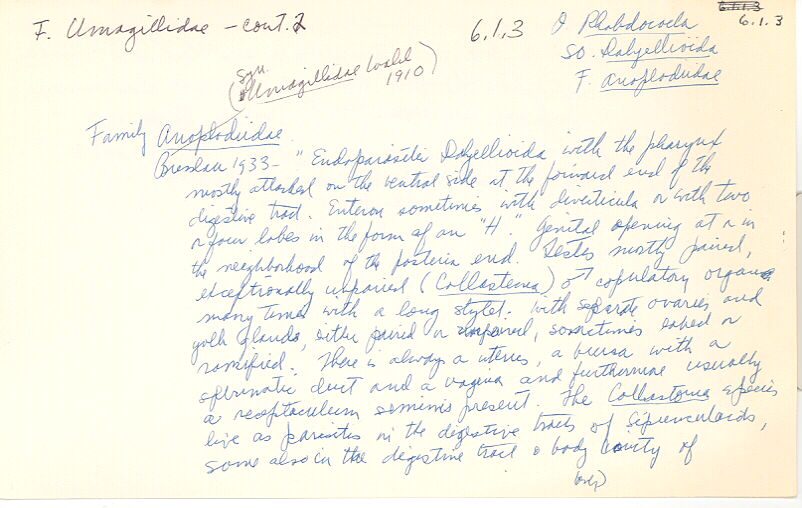 F. Umagillidae - cont. 2
6.1.3
O Rhabdocoela
6.1.3
6.1.3
SO. Dalyellioida
F. Anoplodiidae
(Syn. Umagillidae Wahl 1910)
Family Anoplodiidae
Bresslau 1933 - "Endoparasitic Dalyellioida with the pharynx
mostly attached on the ventral side at the forward end of the
digestive tract. Enteron sometimes with diverticula or with two
or four lobes in the form of an "H." Genital opening at or in
the neighborhood of the posterior end. Testes mostly paired,
exceptionally unpaired (Collastoma) ♂ copulatory organs
many times with a long stylet. With separate ovaries and
yolk glands, either paired or unpaired, sometimes lobed or
ramified. There is always a uterus, a bursa with a
spermatic duct and a vagina and furthermore usually
a receptaculum seminis present. The Collastoma species
live as parasites in the digestive tracts of Sipunculoids,
some also in the digestive tract & body cavity of
(over)